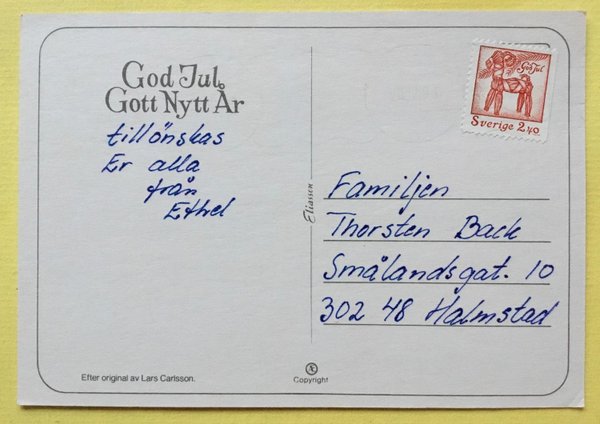 God Jul
Gott Nytt År
tillönskas
Er alla
från
Ethel
Efter original av Lars Carlsson.
Eliasson
Copyright
God Jul
Sverige 2.40
Familjen
Thorsten Back
Smålandsgat. 10
302 48 Halmstad